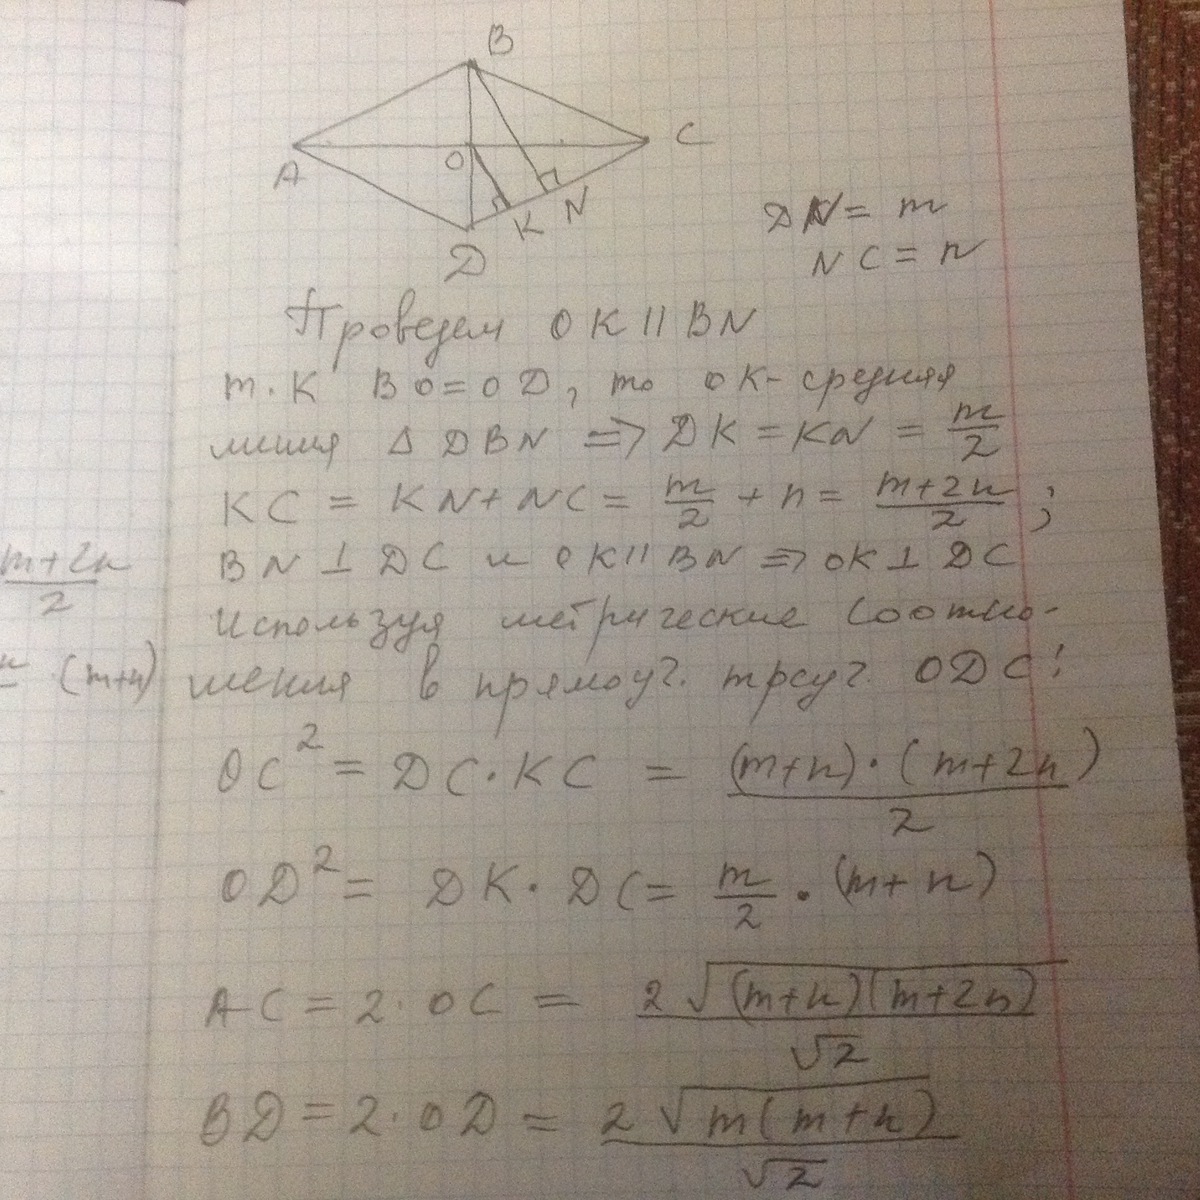 B
A
C
O
K
N
D
DN = m
NC = n
Проведем OK || BN
т.к BO = OD, то OK - средняя
линия Δ DBN => DK = KN = m/2
KC = KN + NC = m/2 + n = (m+2n)/2 ;
BN ⊥ DC и OK || BN => OK ⊥ DC
Используя метрические соотно-
шения в прямоуг. треуг. ODC:
OC² = DC · KC = (m+n)·(m+2n)/2
OD² = DK · DC = m/2 · (m+n)
AC = 2 · OC = 2√((m+n)(m+2n))/√2
BD = 2 · OD = 2√(m(m+n))/√2
(m+2n)/2
(m+n)